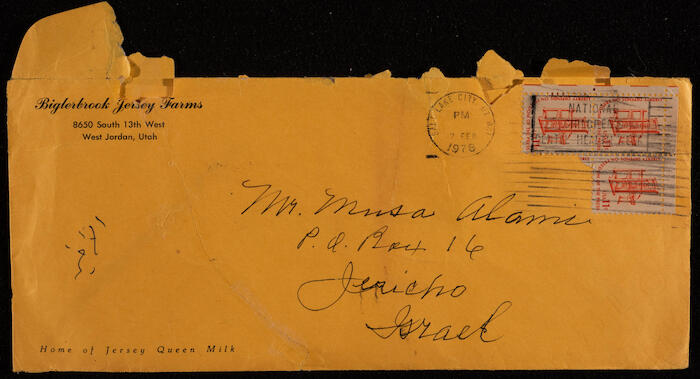 Biglerbrook Jersey Farms
8650 South 13th West
West Jordan, Utah
SALT LAKE CITY, UT
PM
2 FEB
1978
NATIONAL
CHILDREN'S
DENTAL HEALTH
Mr. Musa Alami
P.O. Box 16
Jericho
Israel
Home of Jersey Queen Milk